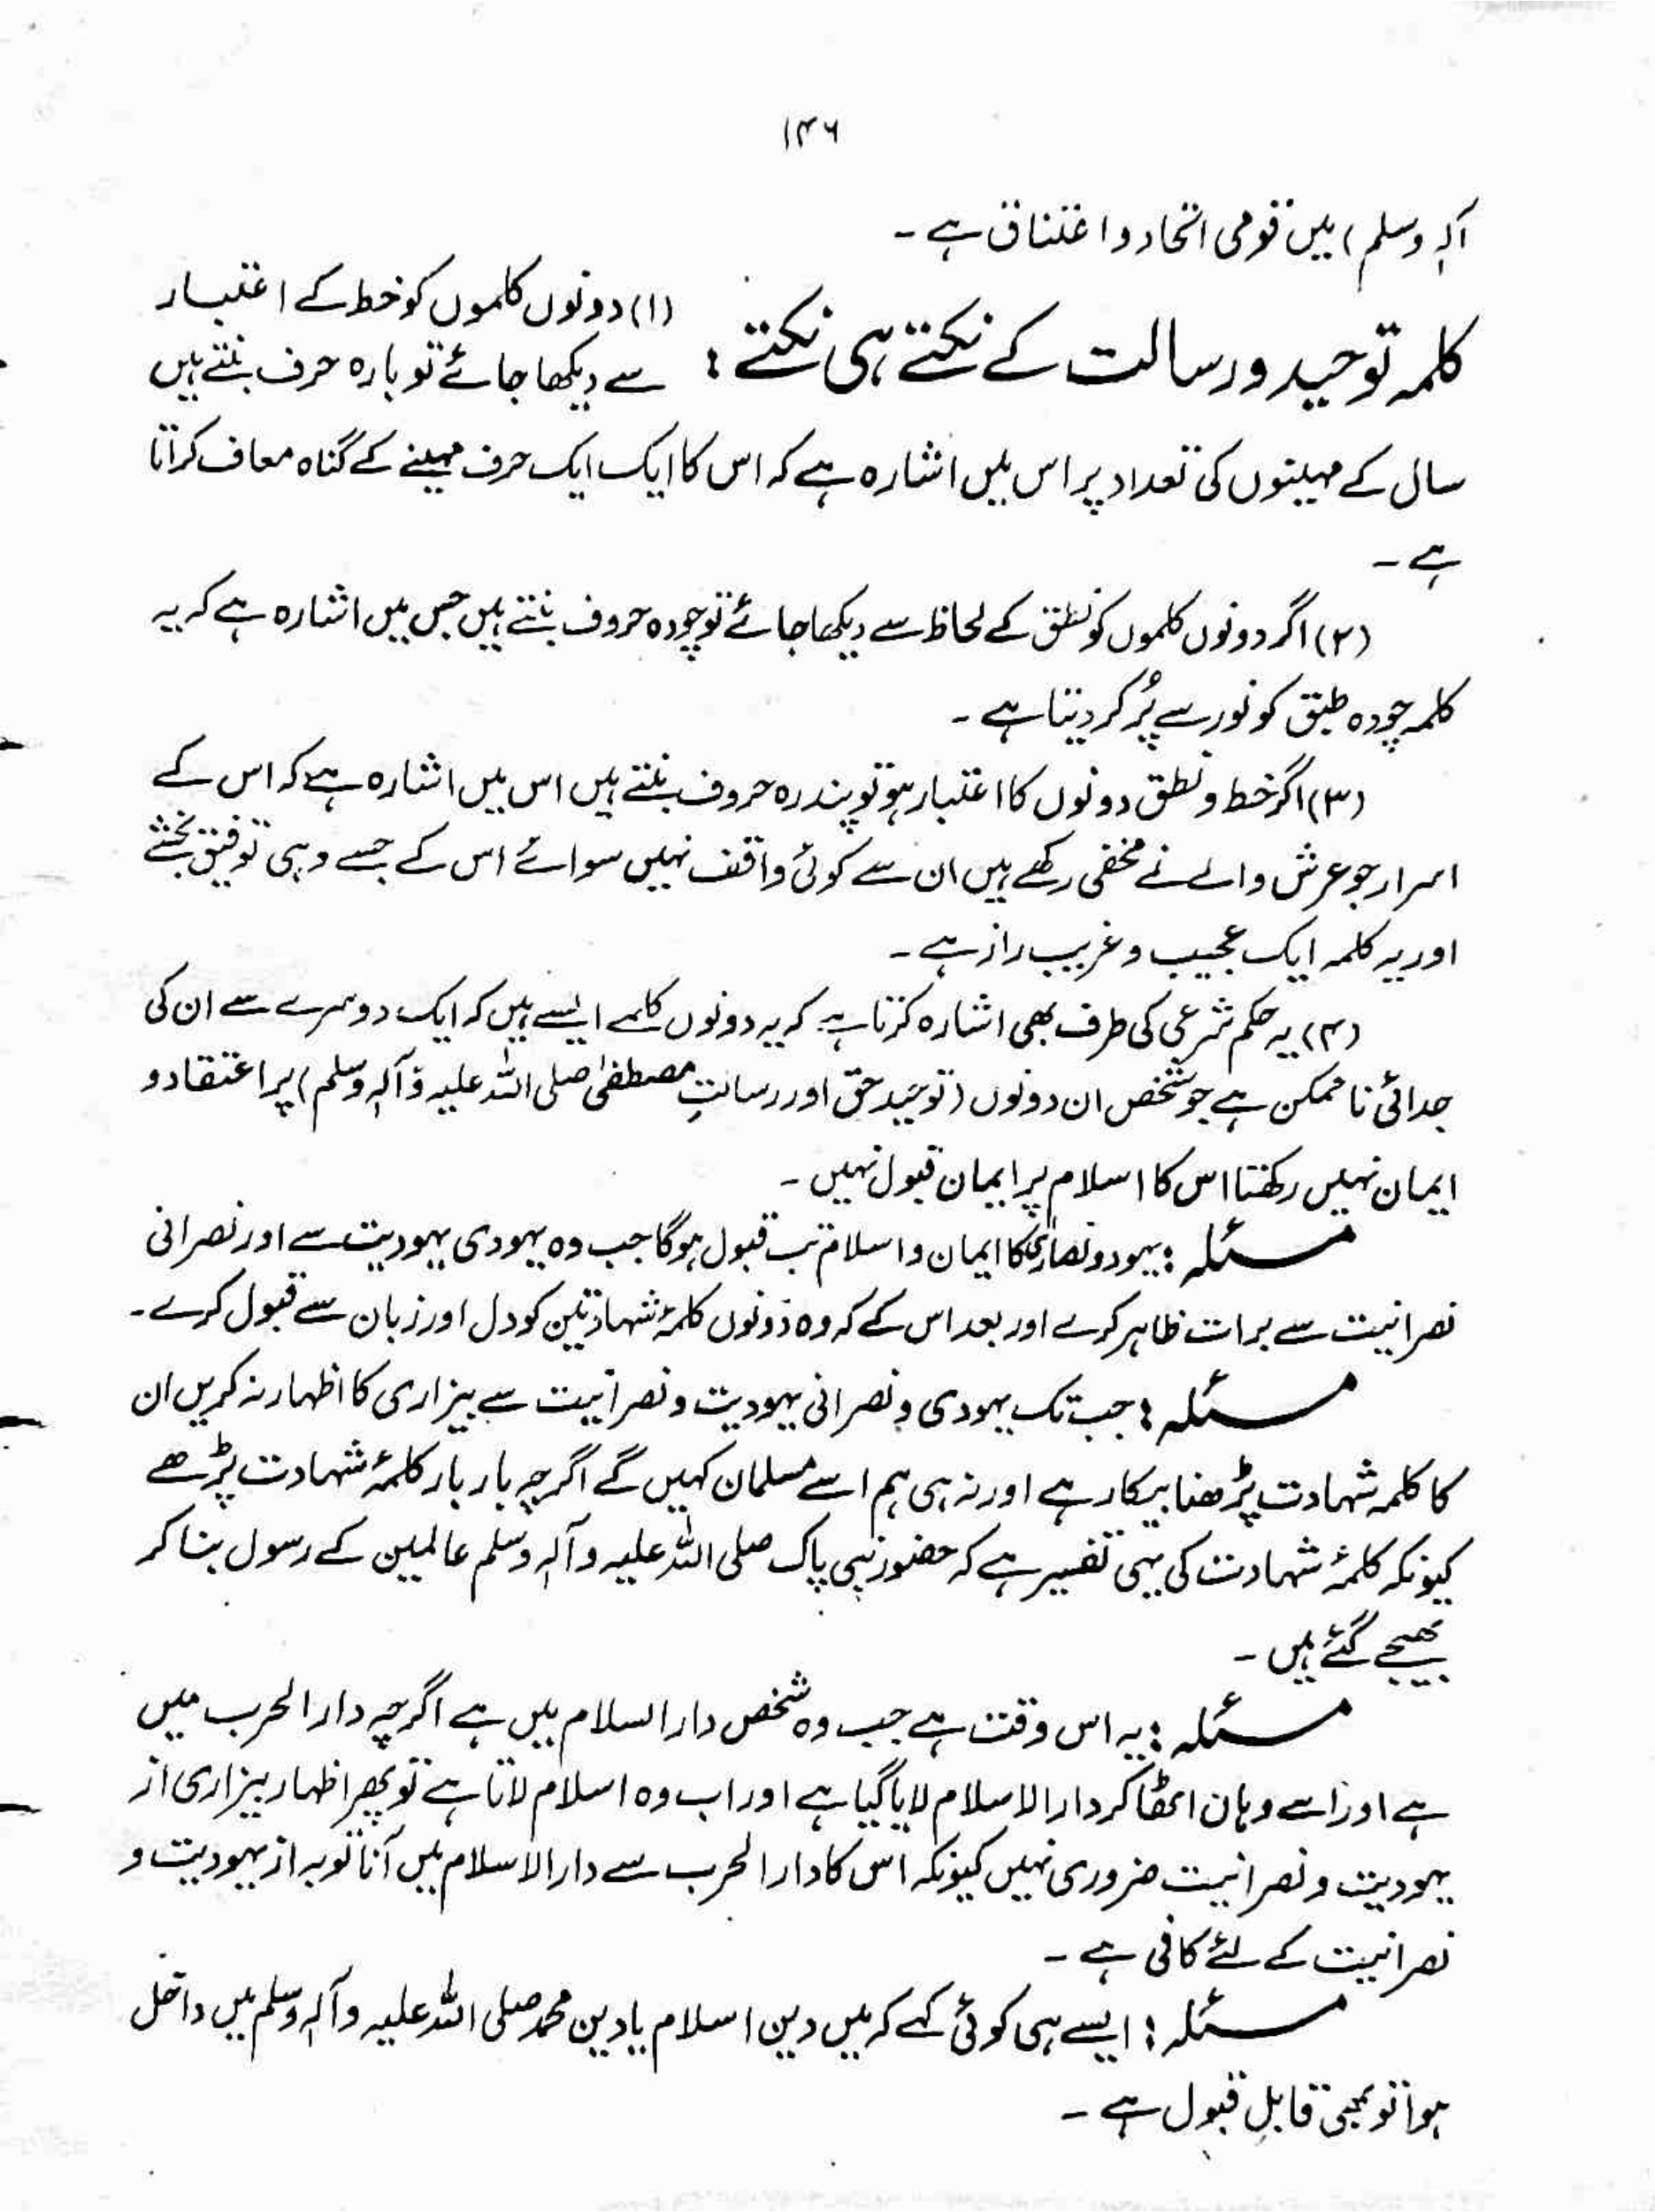 ۱۴۶
آلہٖ وسلم) میں قومی اتحاد و اعتناق ہے ۔
کلمہ توحید و رسالت کے نکتے ہی نکتے :
(۱) دونوں کلموں کو خط کے اعتبار
سے دیکھا جائے تو بارہ حرف بنتے ہیں
سال کے مہینوں کی تعداد پر اس میں اشارہ ہے کہ اس کا ایک ایک حرف مہینے کے گناہ معاف کراتا
ہے ۔
(۲) اگر دونوں کلموں کو نطق کے لحاظ سے دیکھا جائے تو چودہ حروف بنتے ہیں جس میں اشارہ ہے کہ یہ
کلمہ چودہ طبق کو نور سے پُر کر دیتا ہے ۔
(۳) اگر خط و نطق دونوں کا اعتبار ہو تو پندرہ حروف بنتے ہیں اس میں اشارہ ہے کہ اس کے
اسرار جو عرش والے نے مخفی رکھے ہیں ان سے کوئی واقف نہیں سوائے اس کے جسے وہی توفیق بخشے
اور یہ کلمہ ایک عجیب و غریب راز ہے ۔
(۴) یہ حکم شرعی کی طرف بھی اشارہ کرتا ہے کہ یہ دونوں کلمے ایسے ہیں کہ ایک دوسرے سے ان کی
جدائی ناممکن ہے جو شخص ان دونوں (توحید حق اور رسالتِ مصطفیٰ صلی اللہ علیہ وآلہٖ وسلم) پر اعتقاد و
ایمان نہیں رکھتا اس کا اسلام پر ایمان قبول نہیں ۔
مسئلہ : یہود و نصاریٰ کا ایمان و اسلام تب قبول ہوگا جب وہ یہودی یہودیت سے اور نصرانی
نصرانیت سے برات ظاہر کرے اور بعد اس کے کہ وہ دونوں کلمۂ شہادتین کو دل اور زبان سے قبول کرے ۔
مسئلہ : جب تک یہودی و نصرانی یہودیت و نصرانیت سے بیزاری کا اظہار نہ کریں ان
کا کلمہ شہادت پڑھنا بیکار ہے اور نہ ہی ہم اسے مسلمان کہیں گے اگرچہ بار بار کلمۂ شہادت پڑھے
کیونکہ کلمۂ شہادت کی یہی تفسیر ہے کہ حضور نبی پاک صلی اللہ علیہ وآلہٖ وسلم عالمین کے رسول بنا کر
بھیجے گئے ہیں ۔
مسئلہ : یہ اس وقت ہے جب وہ شخص دارالسلام میں ہے اگرچہ دارالحرب میں
ہے اور اسے وہاں اٹھا کر دارالاسلام لایا گیا ہے اور اب وہ اسلام لاتا ہے تو پھر اظہار بیزاری از
یہودیت و نصرانیت ضروری نہیں کیونکہ اس کا دارالحرب سے دارالاسلام میں آنا توبہ از یہودیت و
نصرانیت کے لئے کافی ہے ۔
مسئلہ : ایسے ہی کوئی کہے کہ میں دین اسلام یا دین محمد صلی اللہ علیہ وآلہٖ وسلم میں داخل
ہوا تو بھی قابلِ قبول ہے ۔